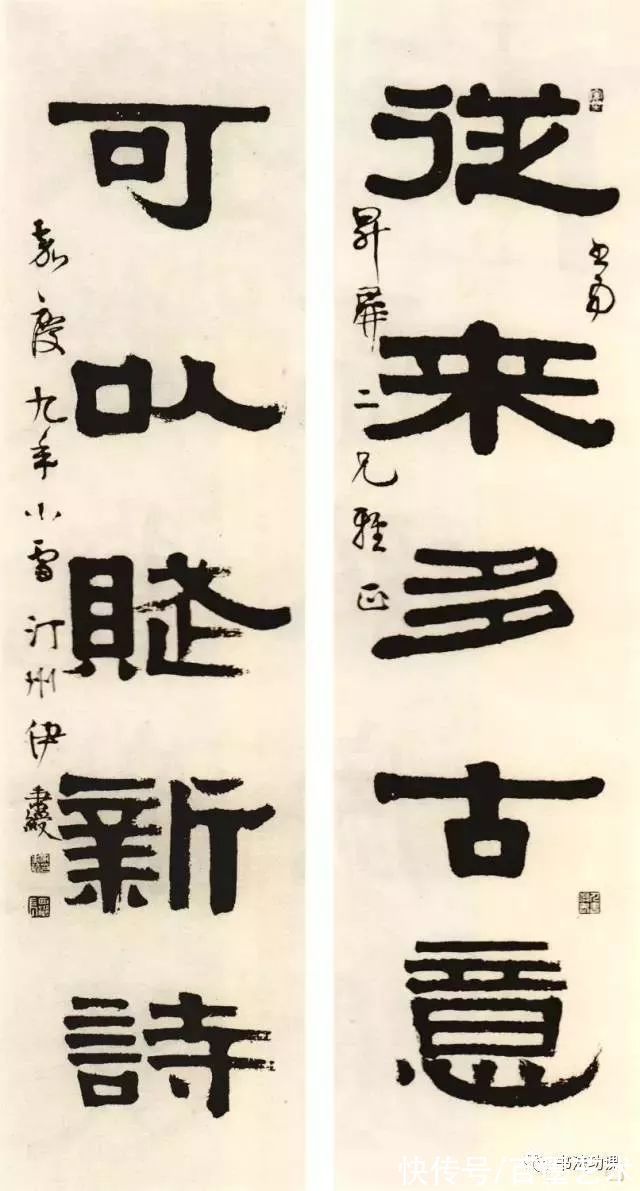 從来多古意
昇屏二兄雅正
可以賦新詩
嘉慶九年小雪汀州伊秉綬
书法功课
快传号/